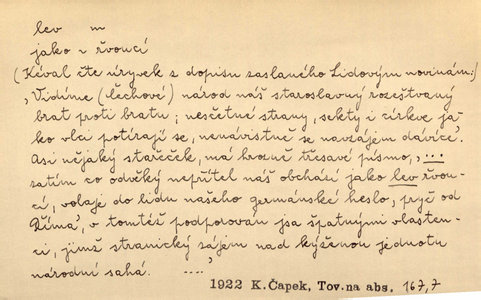 lev m
jako ~ řvoucí
(Kéval čte úryvek z dopisu zaslaného Lidovým novinám:)
„Vidíme (Čechové) národ náš staroslavný rozeštvaný
brat proti bratu; nesčetné strany, sekty i církve ja-
ko vlci potírají se, nenávistně se navzájem dávíce.“
Asi nějaký stařeček, má hrozně třesavé písmo, „...
zatím co odvěký nepřítel náš obchází jako lev řvou-
cí, volaje do lidu našeho germánské heslo ‚pryč od
Říma‘, v tomtéž podporován jsa špatnými vlasten-
ci, jimž stranický zájem nad kýženou jednotu
národní sahá. ....“
1922 K.Čapek, Tov.na abs. 167,7